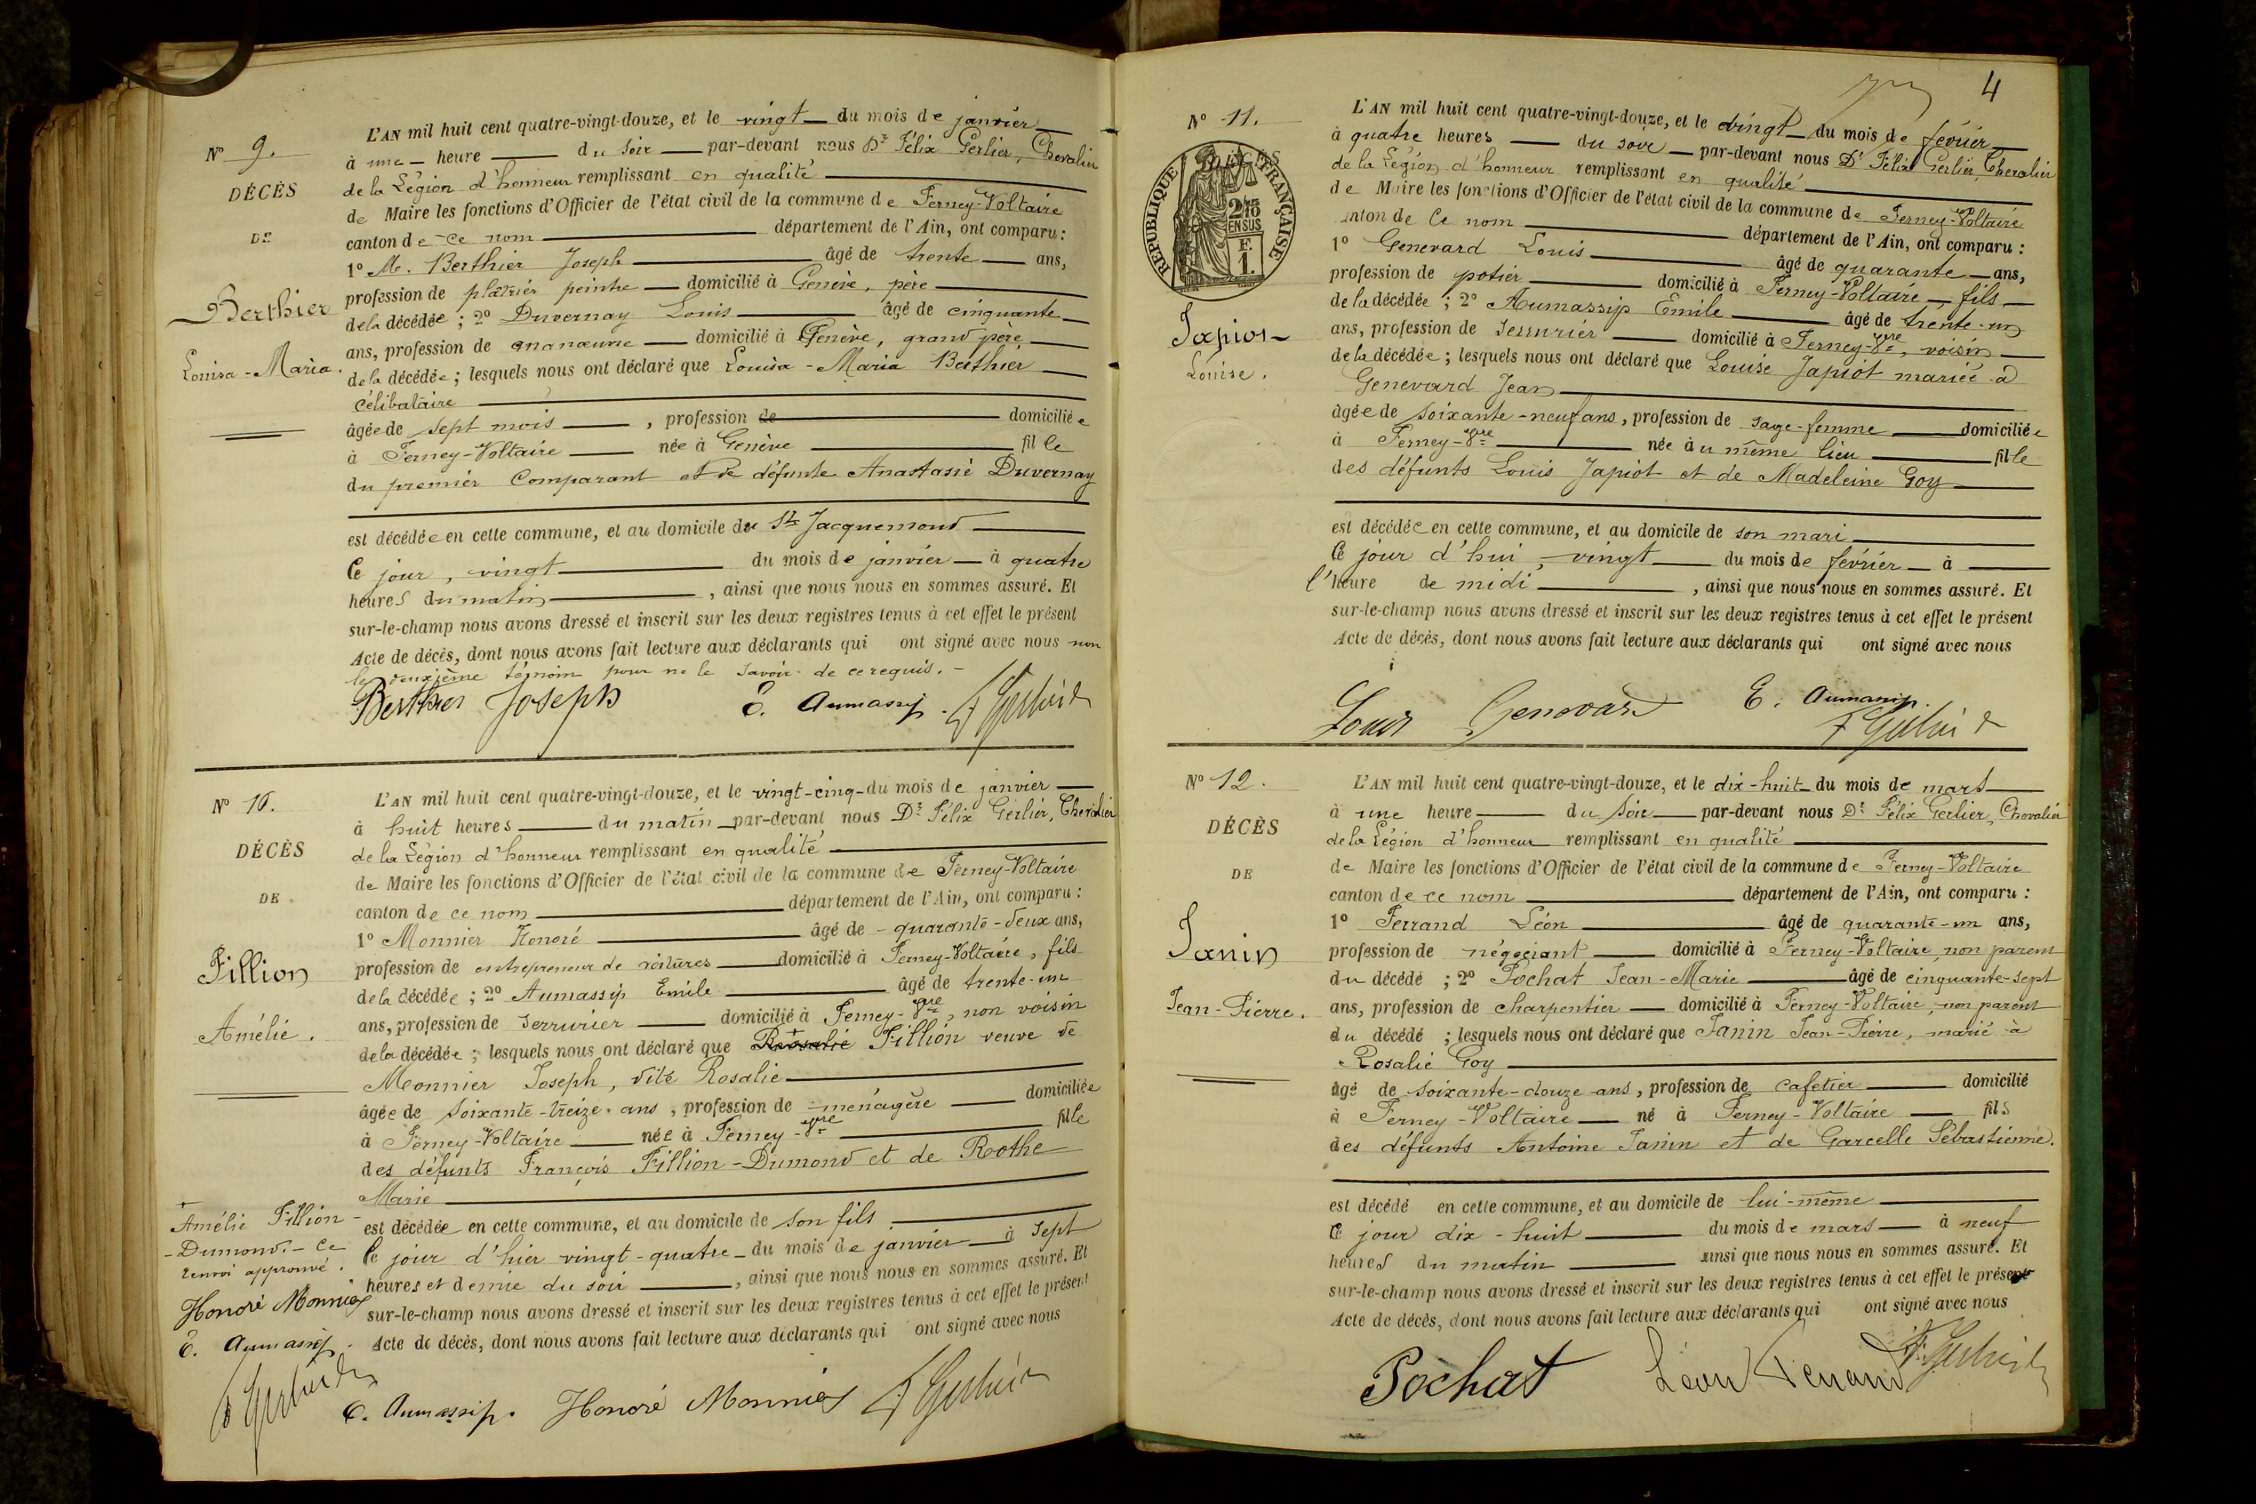 Nº 9.
DÉCÈS
DE
Berthier
Louisa-Maria.
L'AN mil huit cent quatre-vingt-douze, et le vingt du mois de janvier
à une heure du soir par-devant nous Dr Félix Gerlier, Chevalier
de la Légion d'honneur remplissant en qualité
de Maire les fonctions d'Officier de l'état civil de la commune de Ferney-Voltaire
canton de ce nom département de l'Ain, ont comparu :
1º M. Berthier Joseph âgé de trente ans,
profession de plâtrier peintre domicilié à Genève, père
de la décédée ; 2º Duvernay Louis âgé de cinquante
ans, profession de manœuvre domicilié à Genève, grand père
de la décédée ; lesquels nous ont déclaré que Louisa-Maria Berthier
célibataire
âgée de sept mois, profession de domiciliée
à Ferney-Voltaire née à Genève fille
du premier Comparant et de défunte Anastasie Duvernay
est décédée en cette commune, et au domicile du Sr Jacquemond
Ce jour, vingt du mois de janvier à quatre
heures du matin, ainsi que nous nous en sommes assuré. Et
sur-le-champ nous avons dressé et inscrit sur les deux registres tenus à cet effet le présent
Acte de décès, dont nous avons fait lecture aux déclarants qui ont signé avec nous non
le deuxième témoin pour ne le savoir de ce requis.
Berthier Joseph E. Aumassip. F Gerlier
Nº 10.
DÉCÈS
DE
Fillion
Amélie.
L'AN mil huit cent quatre-vingt-douze, et le vingt-cinq du mois de janvier
à huit heures du matin par-devant nous Dr Félix Gerlier, Chevalier
de la Légion d'honneur remplissant en qualité
de Maire les fonctions d'Officier de l'état civil de la commune de Ferney-Voltaire
canton de ce nom département de l'Ain, ont comparu :
1º Monnier Honoré âgé de quarante-deux ans,
profession de entrepreneur de voitures domicilié à Ferney-Voltaire, fils
de la décédée ; 2º Aumassip Emile âgé de trente-un
ans, profession de serrurier domicilié à Ferney-Vre, non voisin
de la décédée ; lesquels nous ont déclaré que Rosalie Fillion veuve de
Monnier Joseph, dite Rosalie
âgée de soixante-treize ans, profession de ménagère domiciliée
à Ferney-Voltaire née à Ferney-Vre fille
des défunts François Fillion-Dumond et de Rothe
Marie
est décédée en cette commune, et au domicile de son fils
le jour d'hier vingt-quatre du mois de janvier à sept
heures et demie du soir, ainsi que nous nous en sommes assuré. Et
sur-le-champ nous avons dressé et inscrit sur les deux registres tenus à cet effet le présent
Acte de décès, dont nous avons fait lecture aux déclarants qui ont signé avec nous
+
Amélie Fillion-
-Dumond. - Ce
renvoi approuvé.
Honoré Monnier
E. Aumassip.
F Gerlier
E. Aumassip. Honoré Monnier F Gerlier
4
Nº 11.
RÉPUBLIQUE FRANÇAISE
2/10
EN SUS
F.
1.
Japiot
Louise.
L'AN mil huit cent quatre-vingt-douze, et le vingt du mois de février
à quatre heures du soir par-devant nous Dr Félix Gerlier, Chevalier
de la Légion d'honneur remplissant en qualité
de Maire les fonctions d'Officier de l'état civil de la commune de Ferney-Voltaire
canton de Ce nom département de l'Ain, ont comparu :
1º Genevard Louis âgé de quarante ans,
profession de potier domicilié à Ferney-Voltaire, fils
de la décédée ; 2º Aumassip Emile âgé de trente-un
ans, profession de serrurier domicilié à Ferney-Vre, voisin
de la décédée ; lesquels nous ont déclaré que Louise Japiot mariée à
Genevard Jean
âgée de soixante-neuf ans, profession de sage-femme domiciliée
à Ferney-Vre née au même lieu fille
des défunts Louis Japiot et de Madeleine Goy
est décédée en cette commune, et au domicile de son mari
Ce jour d'hui, vingt du mois de février à
l'heure de midi, ainsi que nous nous en sommes assuré. Et
sur-le-champ nous avons dressé et inscrit sur les deux registres tenus à cet effet le présent
Acte de décès, dont nous avons fait lecture aux déclarants qui ont signé avec nous
Louis Genevard E. Aumassip.
F Gerlier
Nº 12.
DÉCÈS
DE
Janin
Jean-Pierre.
L'AN mil huit cent quatre-vingt-douze, et le dix-huit du mois de mars
à une heure du soir par-devant nous Dr Félix Gerlier, Chevalier
de la Légion d'honneur remplissant en qualité
de Maire les fonctions d'Officier de l'état civil de la commune de Ferney-Voltaire
canton de ce nom département de l'Ain, ont comparu :
1º Ferrand Léon âgé de quarante-un ans,
profession de négociant domicilié à Ferney-Voltaire, non parent
du décédé ; 2º Pochat Jean-Marie âgé de cinquante-sept
ans, profession de charpentier domicilié à Ferney-Voltaire, non parent
du décédé ; lesquels nous ont déclaré que Janin Jean-Pierre, marié à
Rosalie Goy
âgé de soixante-douze ans, profession de cafetier domicilié
à Ferney-Voltaire né à Ferney-Voltaire fils
des défunts Antoine Janin et de Garcelle Sébastienne.
est décédé en cette commune, et au domicile de lui-même
Ce jour dix-huit du mois de mars à neuf
heures du matin ainsi que nous nous en sommes assuré. Et
sur-le-champ nous avons dressé et inscrit sur les deux registres tenus à cet effet le présent
Acte de décès, dont nous avons fait lecture aux déclarants qui ont signé avec nous
Pochat Léon Ferrand F. Gerlier